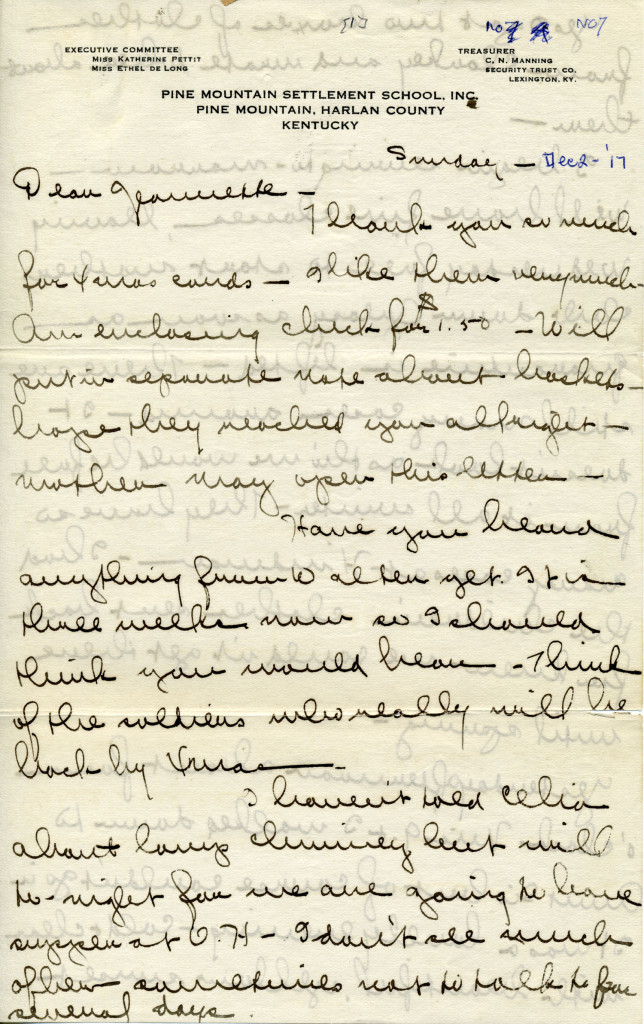 [1]
No7
No7
EXECUTIVE COMMITTEE
MISS KATHERINE PETTIT
MISS ETHEL DE LONG
TREASURER
C. N. MANNING
SECURITY TRUST CO.
LEXINGTON, KY.
PINE MOUNTAIN SETTLEMENT SCHOOL, INC.
PINE MOUNTAIN, HARLAN COUNTY
KENTUCKY
Sunday — Dec 2 - '17
Dear Jeannette —
Thank you so much
for Xmas cards — I like them very much —
Am enclosing check for $1.50 — Will
put in separate note about baskets —
hope they reached you allright —
mother may open this letter —
Have you heard
anything from Walter yet. It is
three weeks now so I should
think you would hear — Think
of the soldiers who really will be
back by Xmas —
I haven't told Celia
about lamp chimney but will
to-night for we are going to have
supper at O.H — I don't see much
of her — sometimes not to talk to for
several days.